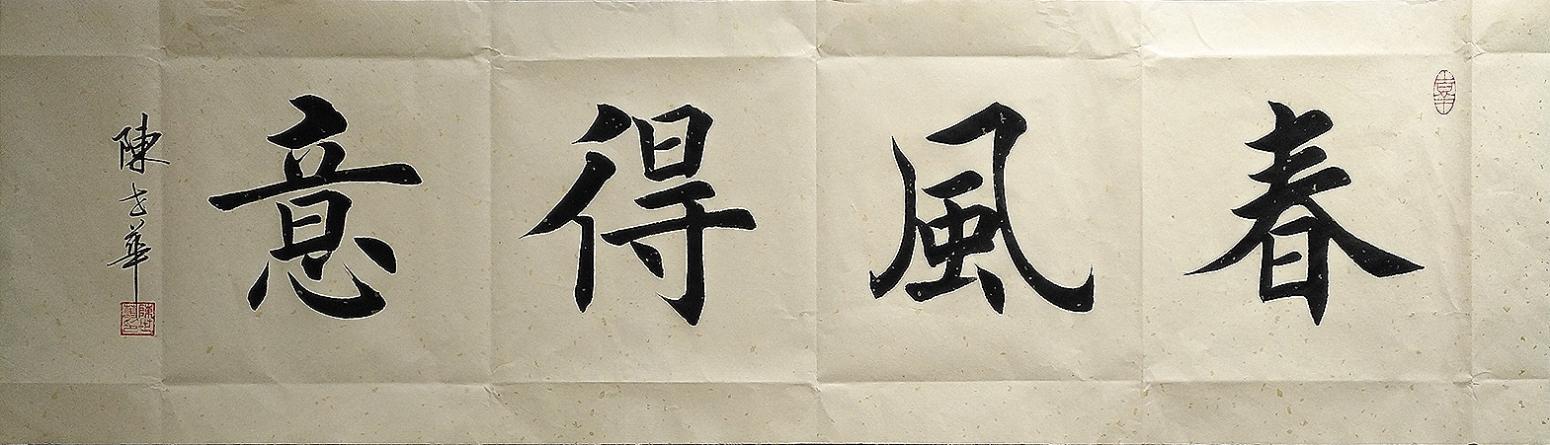 春風得意
陳世華